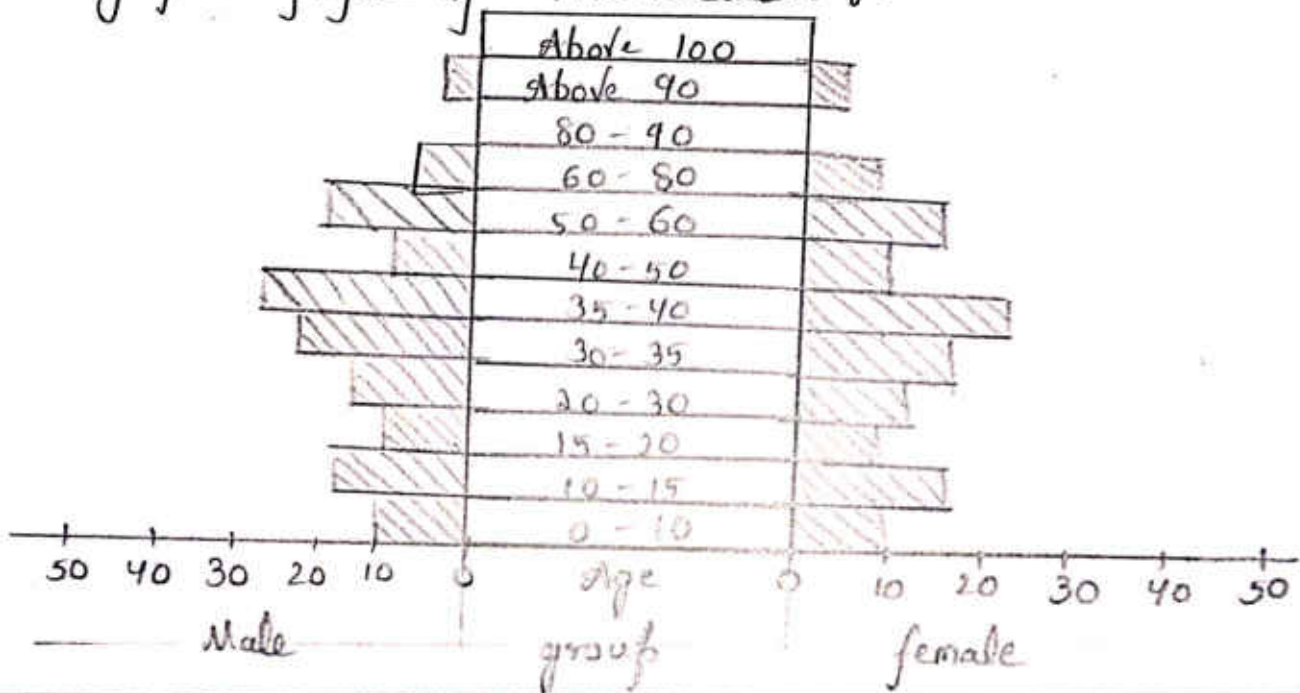 Above 100
Above 90
80 - 90
60 - 80
50 - 60
40 - 50
35 - 40
30 - 35
20 - 30
15 - 20
10 - 15
0 - 10
50 40 30 20 10 0 Age 0 10 20 30 40 50
Male group female